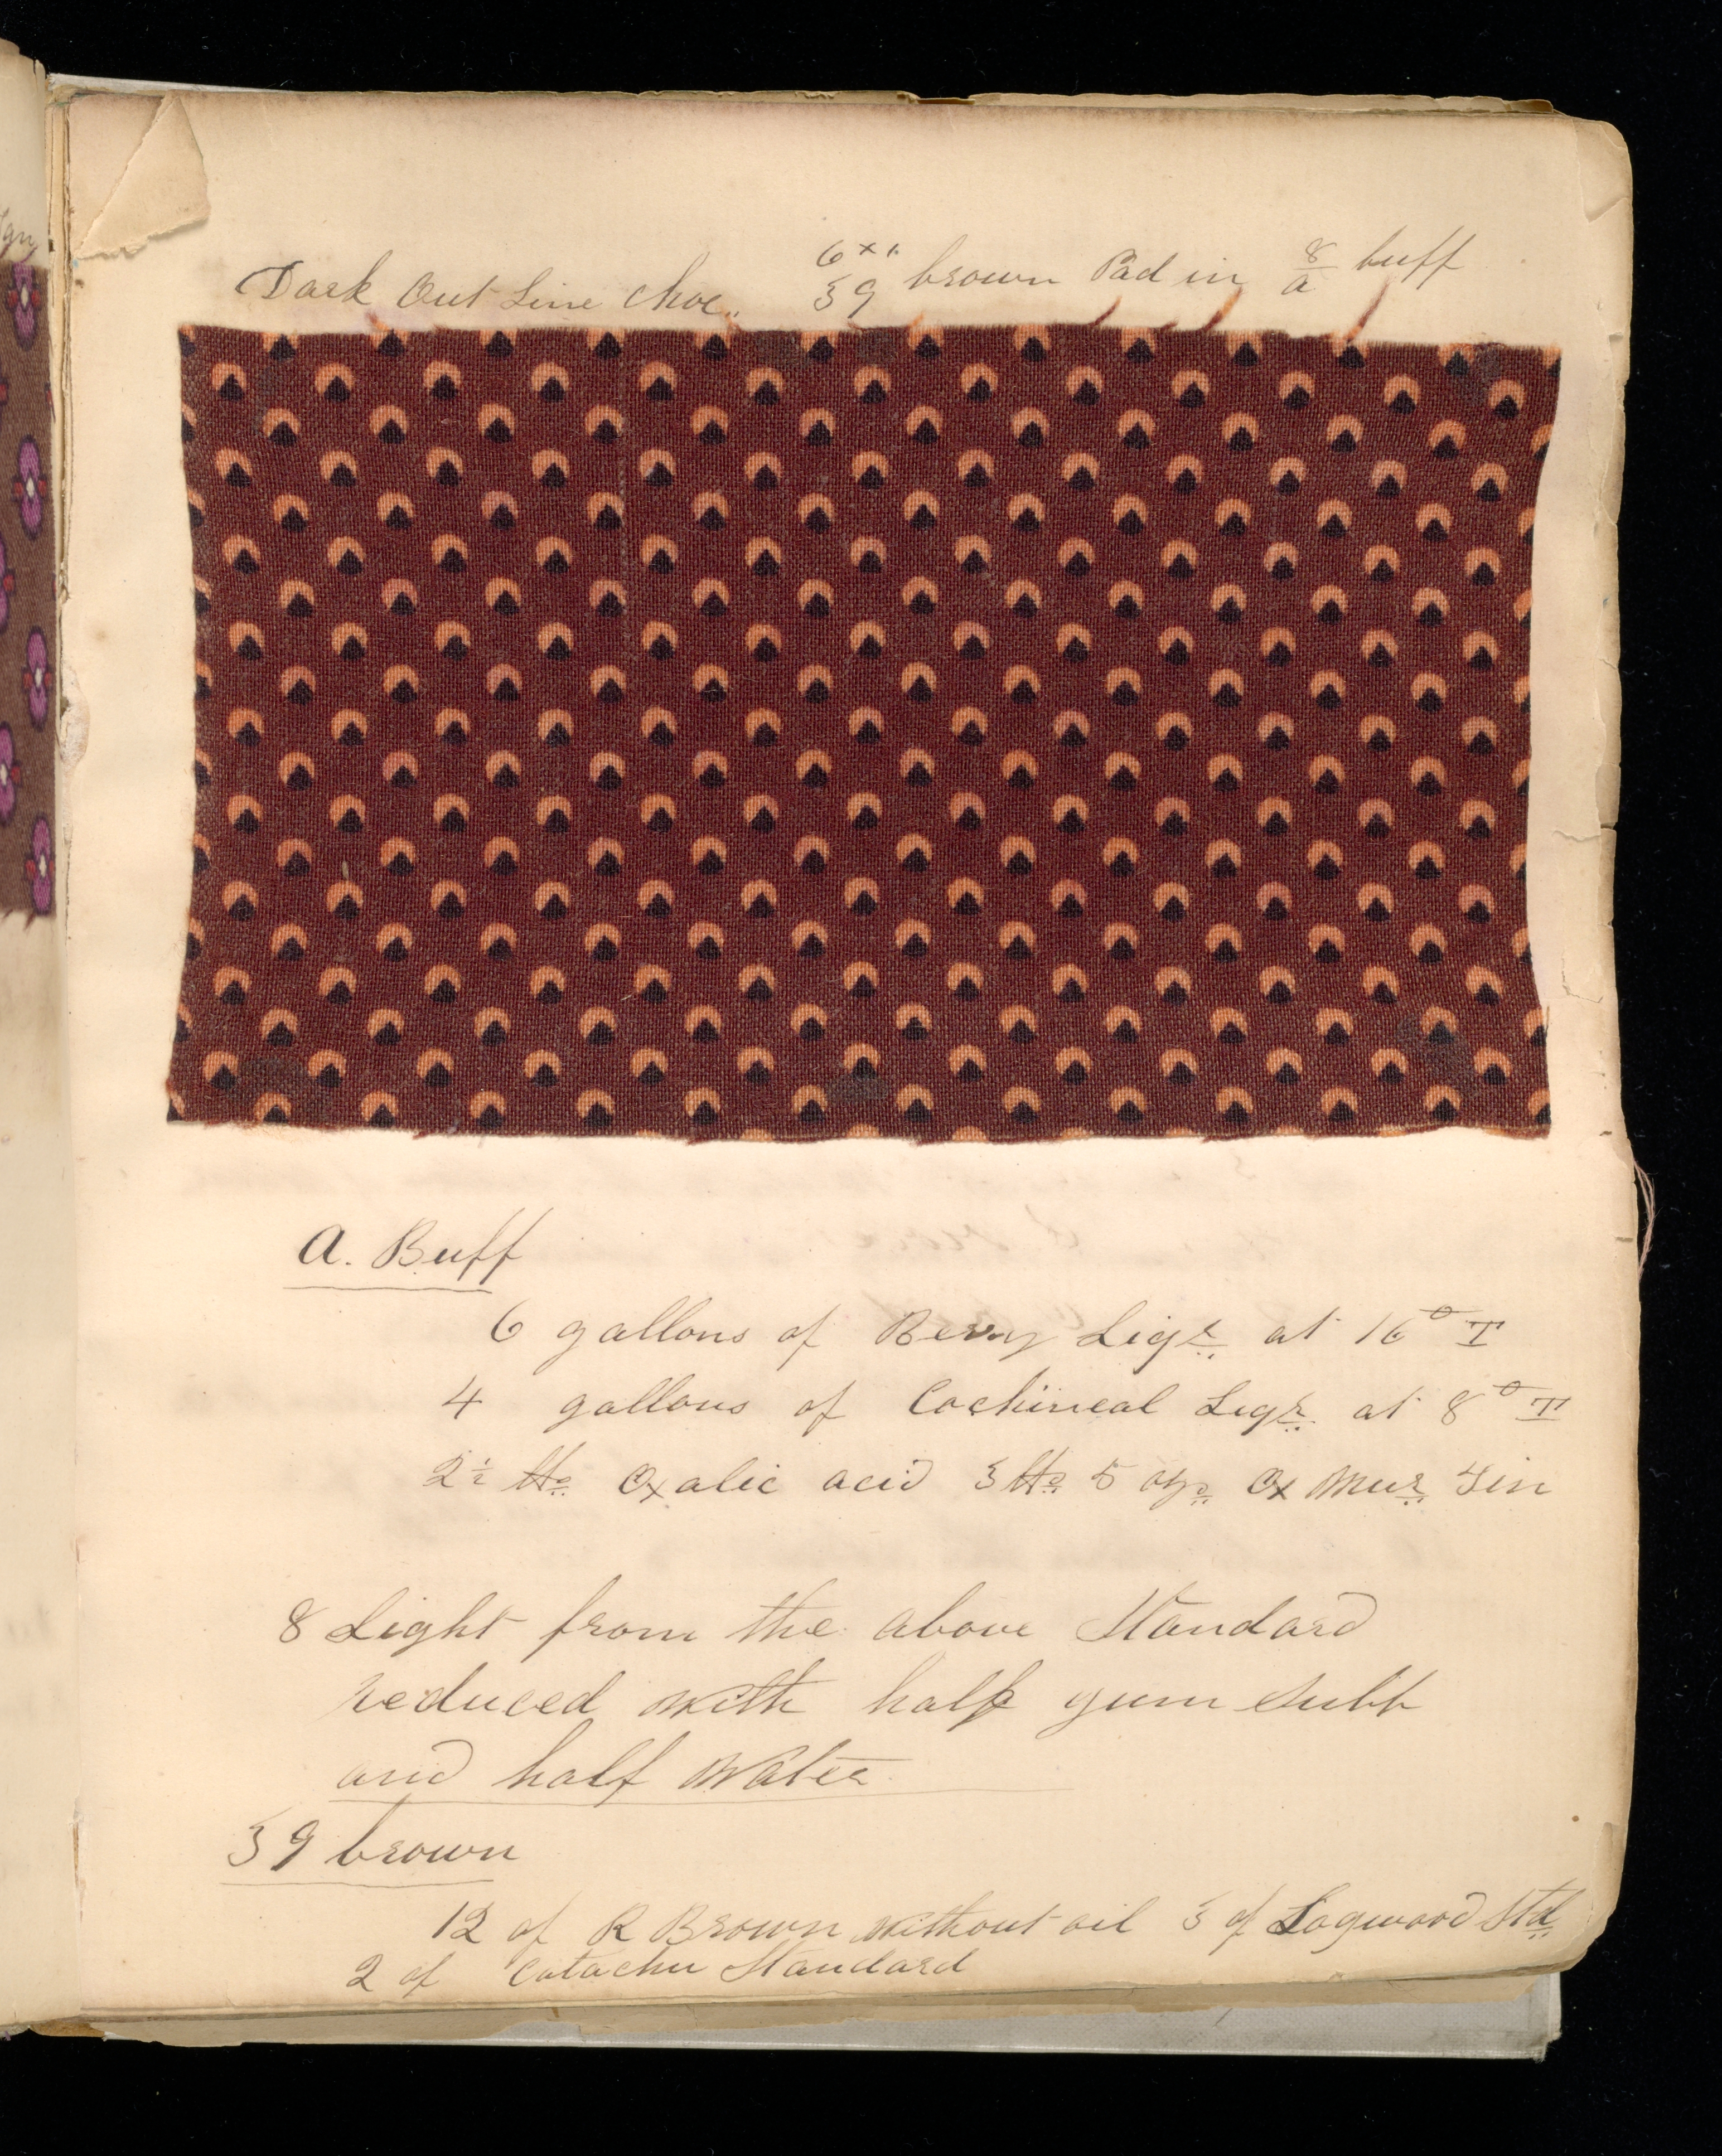 Dark Out Line Choc. 6 x 1. 39 brown Pad in 8/a buff
a. Buff
6 gallons of Berry Liqr at 16° T
4 gallons of Cochineal Liqr at 8° T
2½ lbs Oxalic acid 3 lbs 5 ozs Ox Mur Tin
8 Light from the above Standard
reduced with half gum subb
and half water
39 brown
12 of R Brown without oil 3 of Logwood Std
2 of Catachu Standard